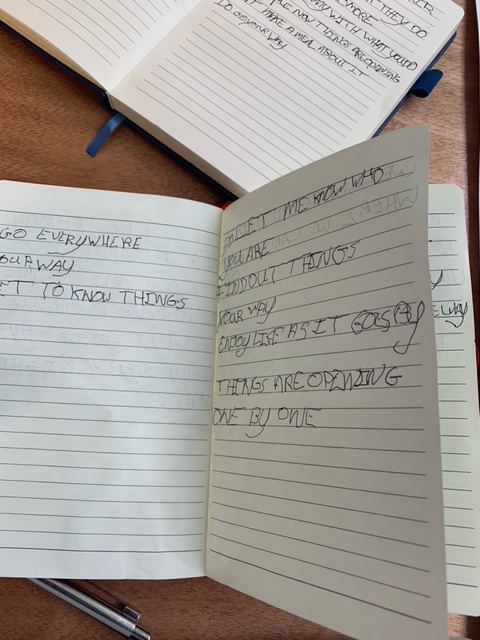 THEY DO
WITH WHAT YOU DO
MORE.
NOW THINGS ARE OPENING
MAKE A MEAL ABOUT IT
DO YOUR WAY
GO EVERYWHERE
OUR WAY
ET TO KNOW THINGS
LET ME KNOW WHO
YOU ARE
FIND OUT THINGS
YOUR WAY
ENJOY LIFE AS IT GOES BY
THINGS ARE OPENING
ONE BY ONE